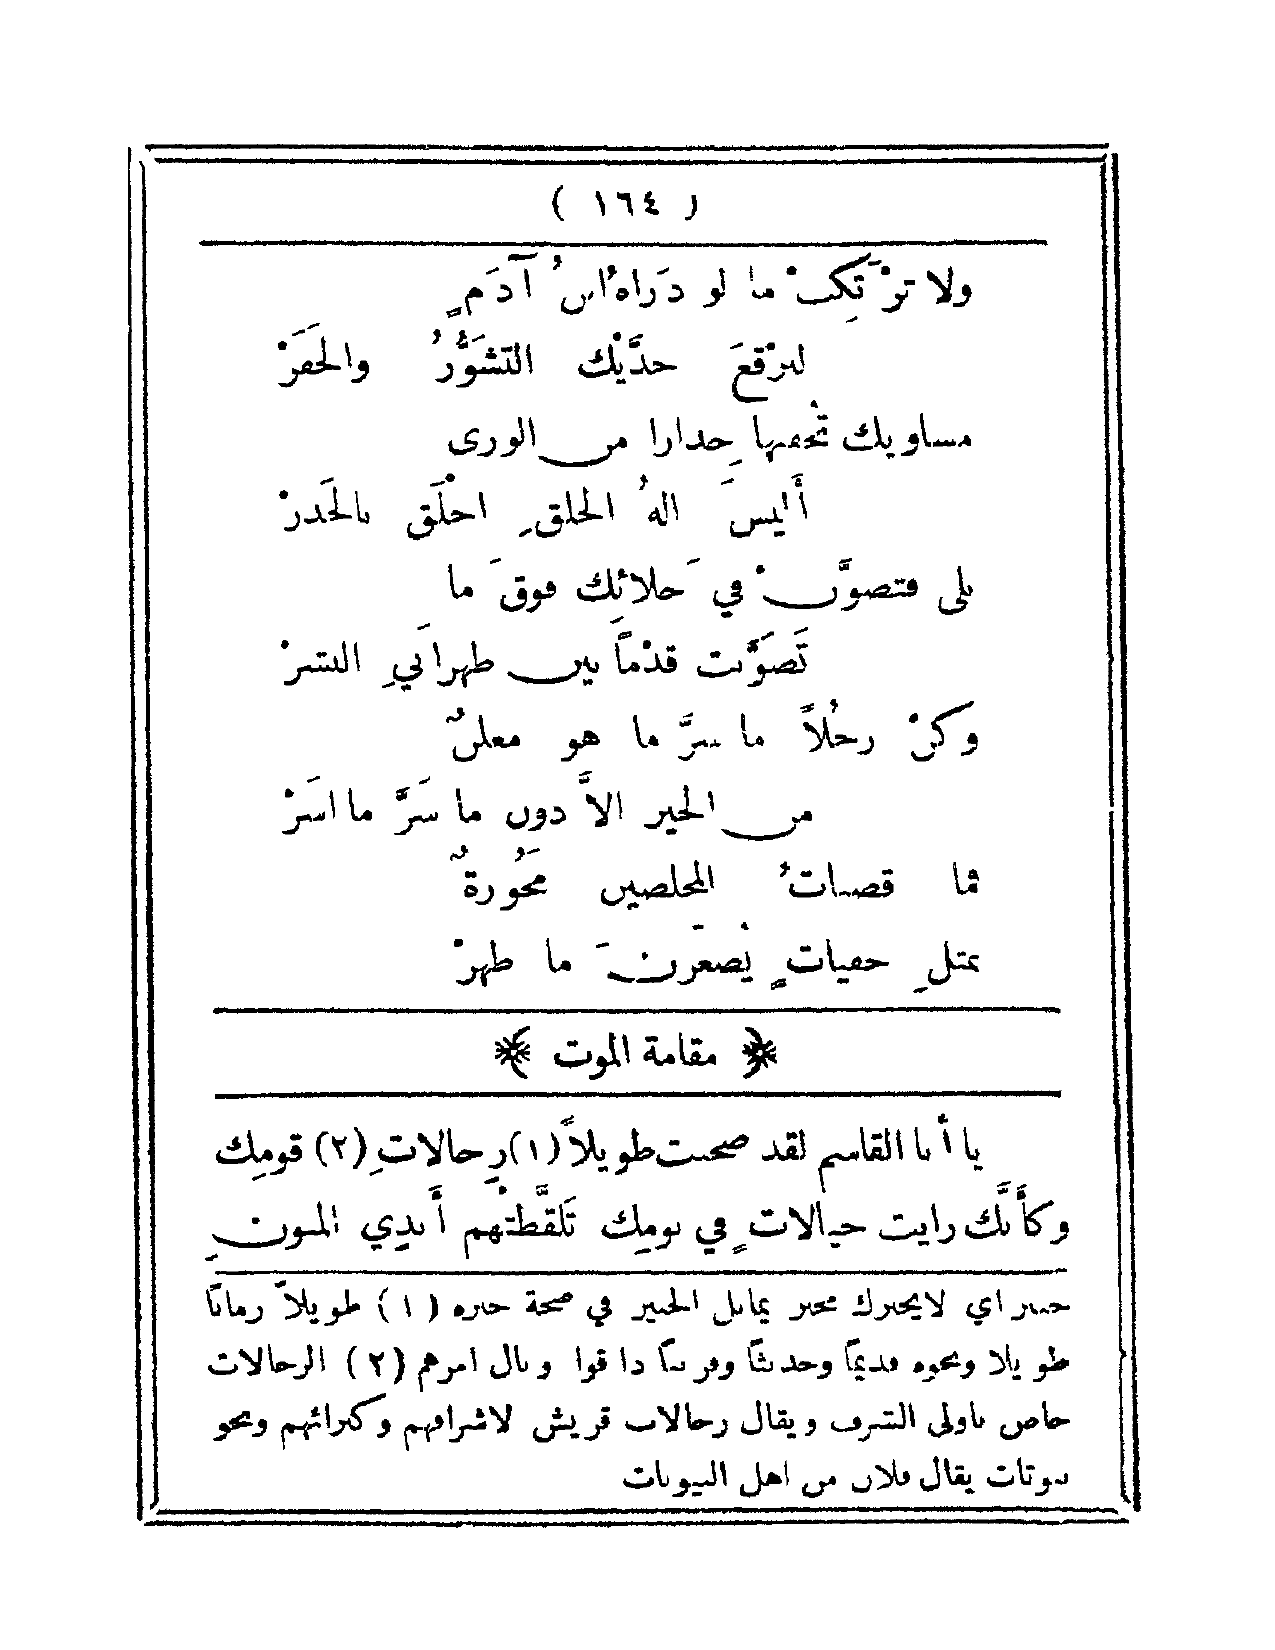 ( ١٦٤ )
ولا ترْتَكِبْ ما لو دَراهُ ابنُ آدَمٍ
لبرْقعَ خدَّيْك التشوُّرُ والخَفَرْ
مساويك تُخفيها حِذارا من الورى
أَليسَ الهُ الخلقِ اخْلَق بالحَذرْ
بلى فتصوَّنْ في خَلائِك فوقَ ما
تَصَوَّنت قدْماً بين ظهرانَيِ البشرْ
وكنْ رجُلاً ما سرَّ ما هو معلنٌ
من الخير الاَّ دون ما سَرَّ ما اسَرْ
فما قصبات المخلصين مَحُوزةٌ
بمثلِ خفياتٍ يُصغّرنَ ما ظهرْ
﴿ مقامة الموت ﴾
يا أبا القاسم لقد صحبت طويلاً (١) رِجالاتِ (٢) قومِك
وكأَنَّك رايت خيالاتٍ في نومِك تلقَّطتْهم أَيدِي المنونِ
خبير اي لا يخبرك مخبر يماثل الخبير في صحة خبره (١) طويلاً زمانا
طويلا ونحوه قديمًا وحديثًا وقريبًا ذاقوا وبال امرهم (٢) الرجالات
خاص باولى الشرف ويقال رجالات قريش لاشرافهم وكبرائهم ونحو
بيوتات يقال فلان من اهل البيوتات